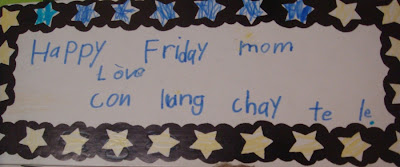 Happy Friday mom
Lòve
con lung chay te le.